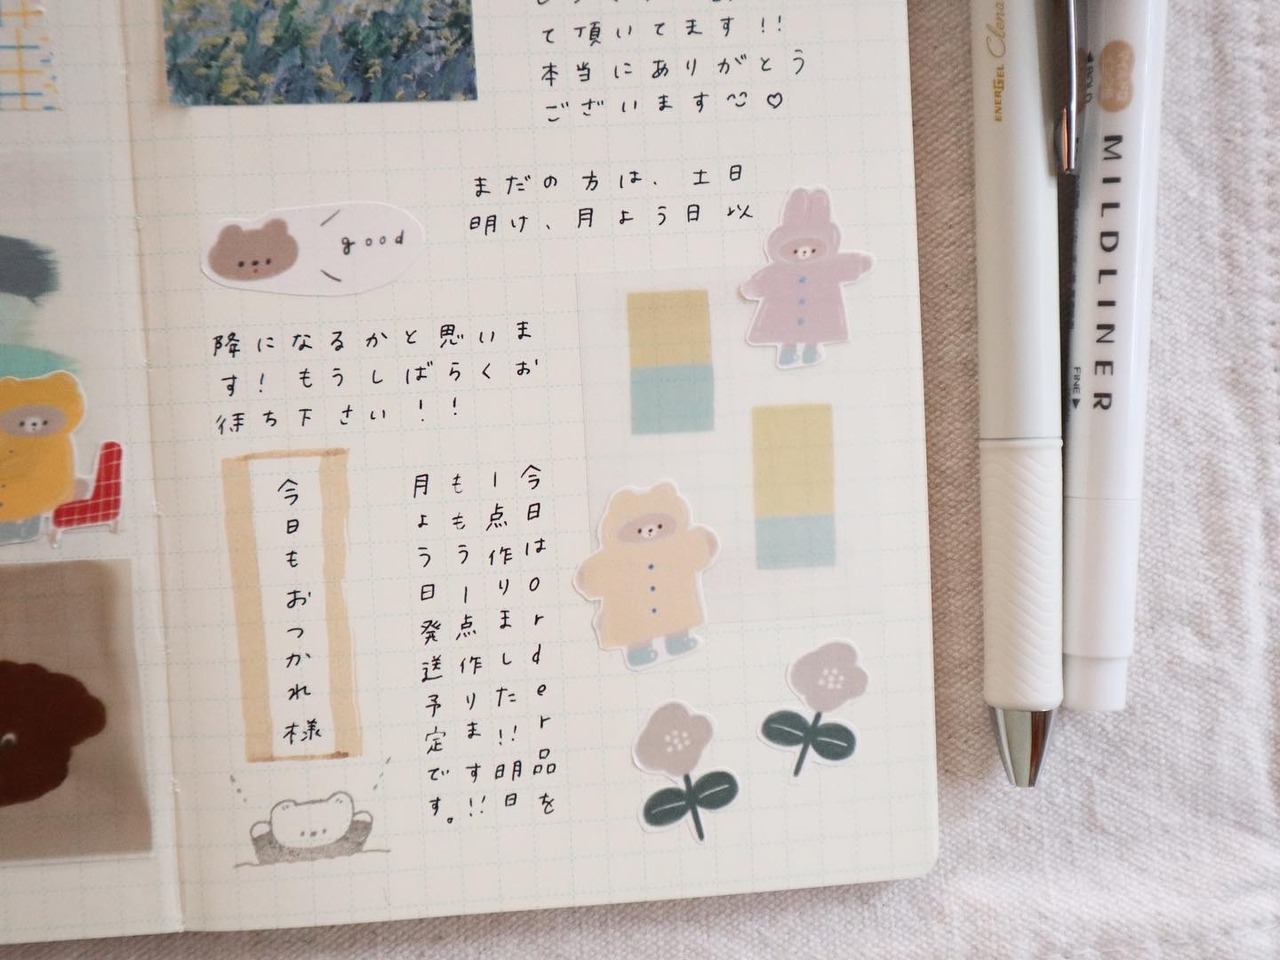 て頂いてます!!
本当にありがとう
ございます
まだの方は、土日
明け、月よう日以
good
降になるかと思いま
す!もうしばらくお
待ち下さい!!
今日もおつかれ様
今日はorder品を
1点作りました!!明日
ももう1点作ります!!
月よう日発送予定です。
ENERGEL Clena
MILDLINER
FINE